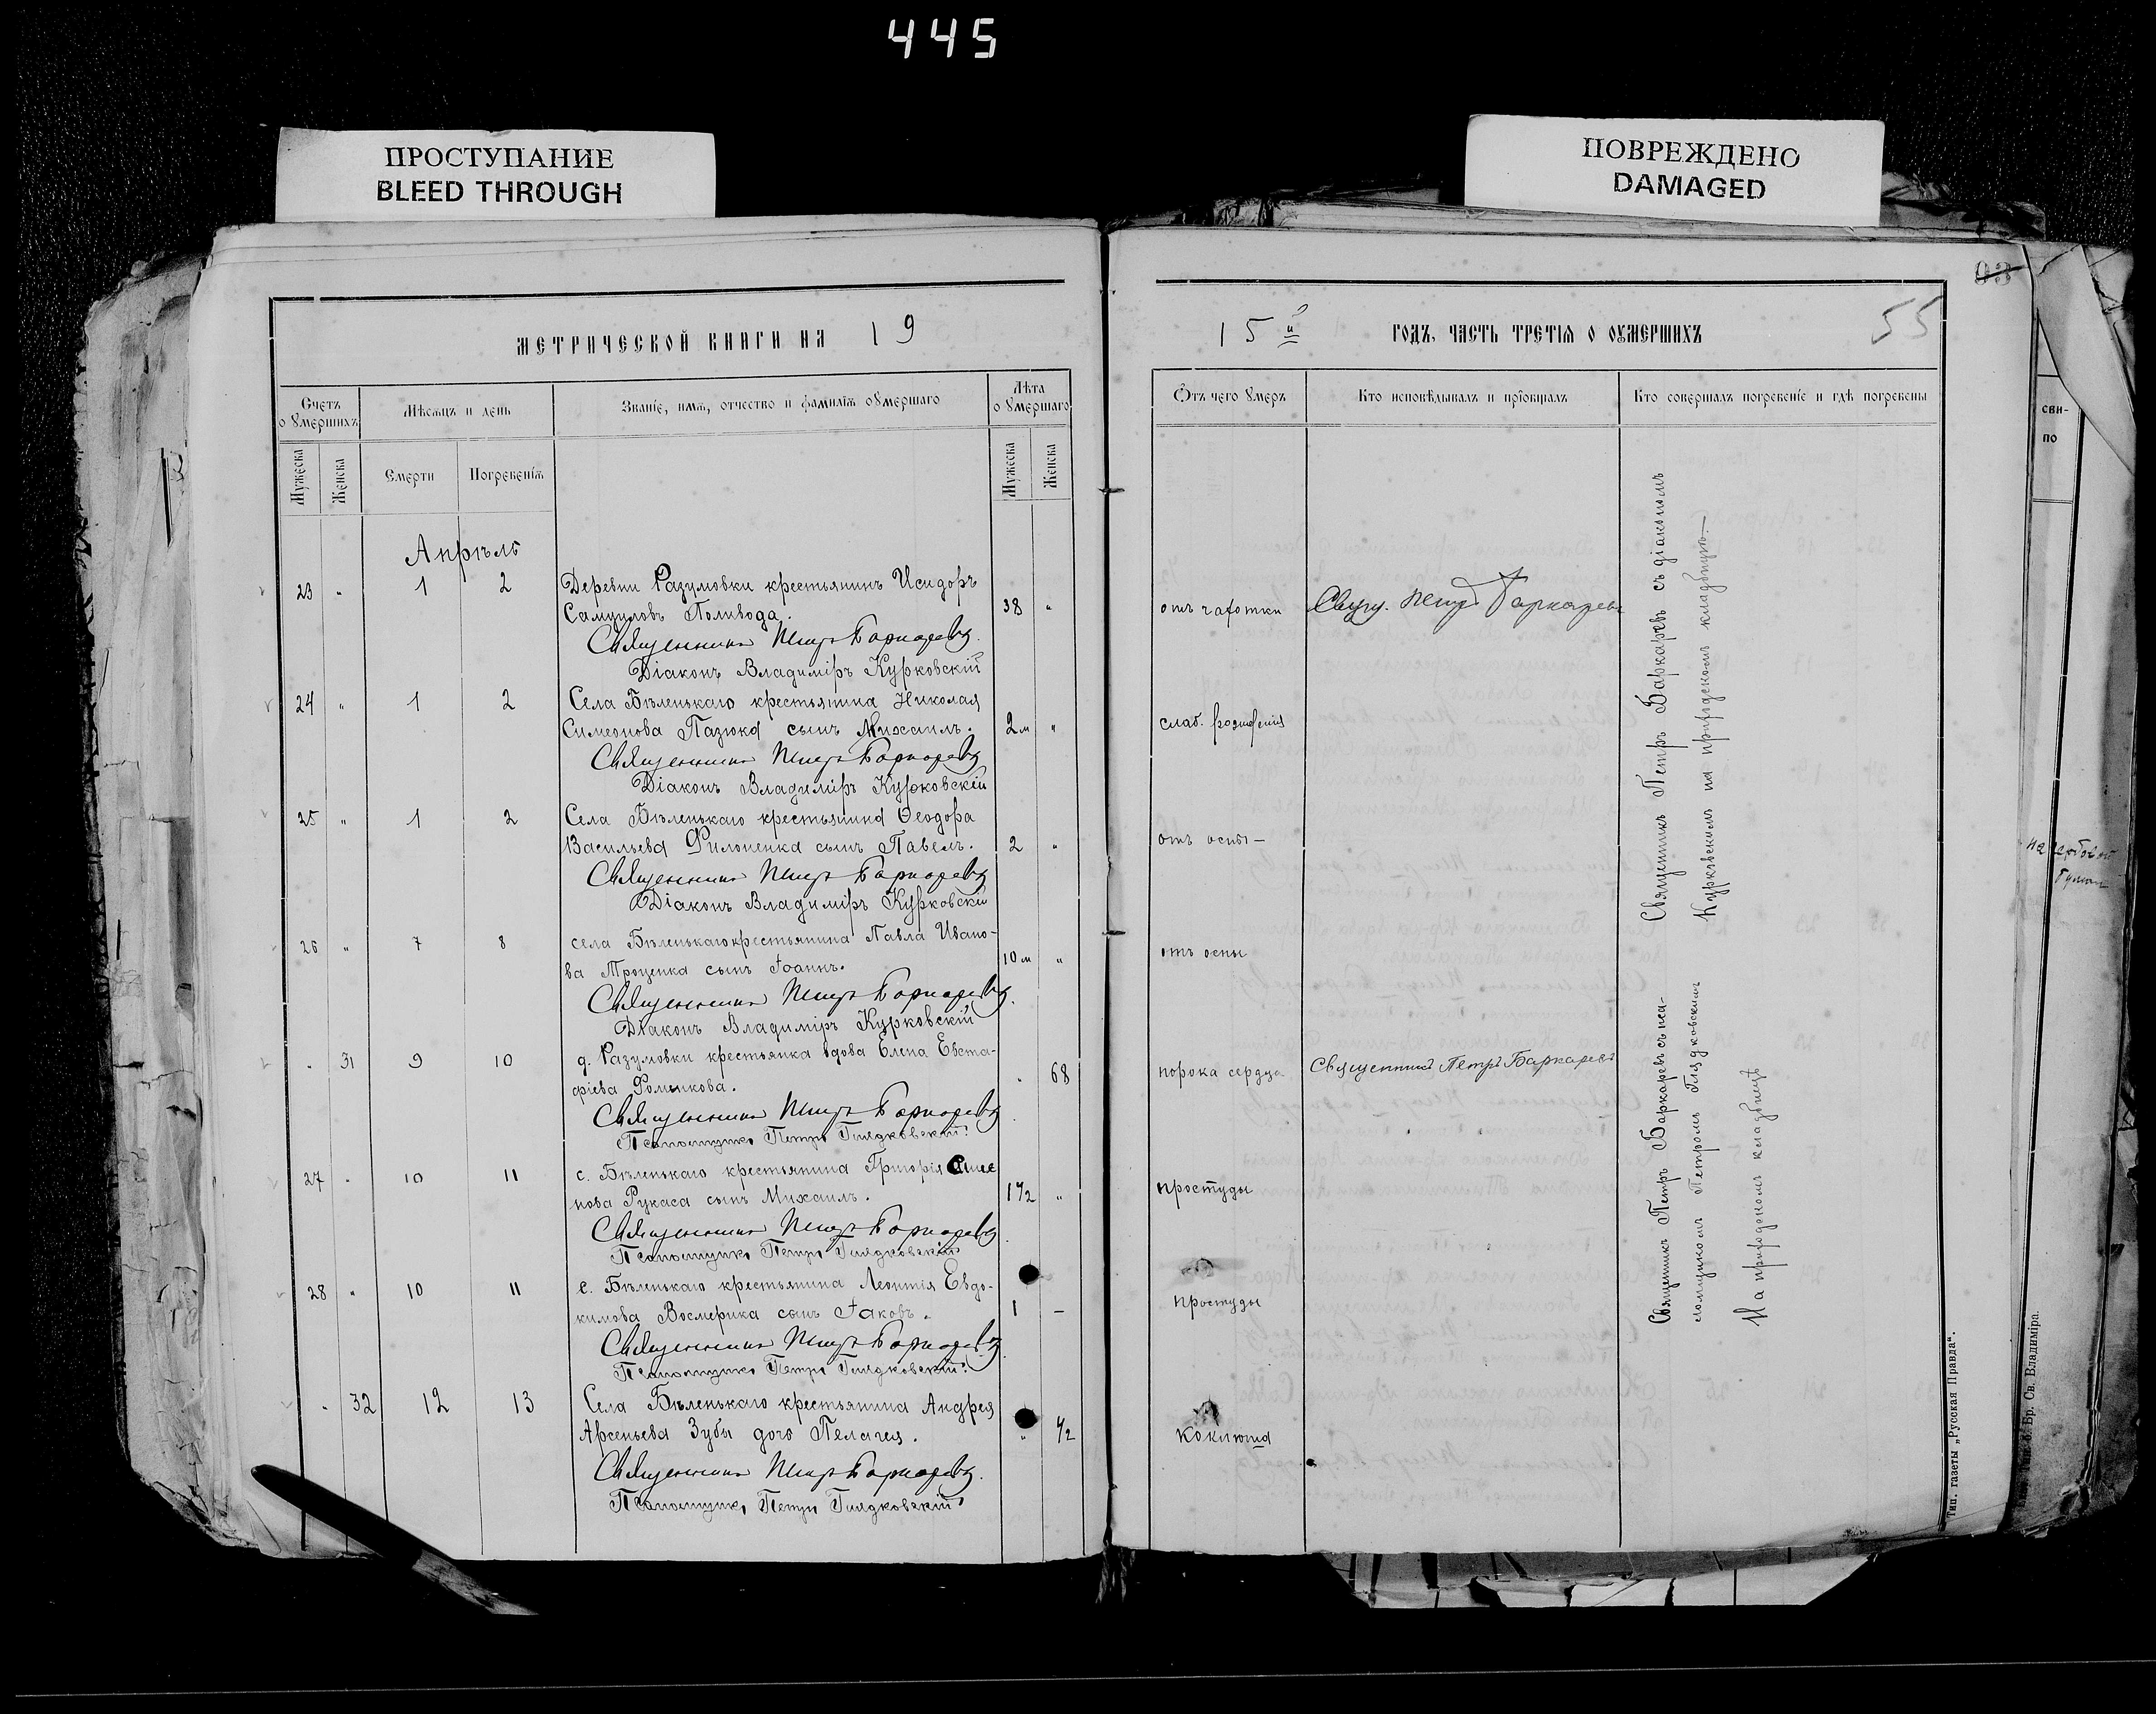 445
ПРОСТУПАНИЕ
BLEED THROUGH
ПОВРЕЖДЕНО
DAMAGED
03
55
МЕТРИЧЕСКОЙ КНИГИ НА 19
15й ГОДЪ, ЧАСТЬ ТРЕТІЯ О ОУМЕРШИХЪ
Счетъ о Умершихъ
Мѣсяцъ и день
Званіе, имя, отчество и фамилія оумершаго
Лѣта о Умершаго
Отъ чего Умеръ
Кто исповѣдывалъ и пріобщалъ
Кто совершалъ погребеніе и гдѣ погребены
Мужеска
Женска
Смерти
Погребенія
Мужеска
Женска
Апрѣль
23 " 1 2 Деревни Разумовки крестьянинъ Исидоръ
Самуиловъ Поливода. 38 " отъ чахотки Свящ. Петръ Баркаревъ
Священникъ Петръ Баркаревъ
Діаконъ Владиміръ Курковскій
24 " 1 2 Села Бѣленькаго крестьянина Николая
Симеонова Пазюка сынъ Михаилъ. 2 м " слаб. рожденія
Священникъ Петръ Баркаревъ
Діаконъ Владиміръ Курковскій
25 " 1 2 Села Бѣленькаго крестьянина Ѳеодора
Васильева Филоненка сынъ Павелъ. 2 " отъ оспы –
Священникъ Петръ Баркаревъ
Діаконъ Владиміръ Курковскій
26 " 7 8 села Бѣленькаго крестьянина Павла Ивано-
ва Троценка сынъ Іоаннъ. 10 м " отъ оспы
Священникъ Петръ Баркаревъ
Діаконъ Владиміръ Курковскій
" 31 9 10 д. Разумовки крестьянка вдова Елена Евста-
фіева Фоменкова. " 68 порока сердца Священникъ Петръ Баркаревъ
Священникъ Петръ Баркаревъ
Псаломщикъ Петръ Гиядковскій
27 " 10 11 с. Бѣленькаго крестьянина Григорія Симе
нова Рукаса сынъ Михаилъ. 1 1/2 " простуды
Священникъ Петръ Баркаревъ
Псаломщикъ Петръ Гиядковскій
28 " 10 11 с. Бѣленькаго крестьянина Леонтія Евдо-
кимова Восмерика сынъ Іаковъ. 1 – простуды
Священникъ Петръ Баркаревъ
Псаломщикъ Петръ Гиядковскій
" 32 12 13 Села Бѣленькаго крестьянина Андрея
Арсеньева Зубы дочь Пелагея. " 1/2 коклюша
Священникъ Петръ Баркаревъ
Псаломщикъ Петръ Гиядковскій
Священникъ Петръ Баркаревъ съ діакономъ
Курковскимъ на приходскомъ кладбищѣ.
Священникъ Петръ Баркаревъ съ пса-
ломщикомъ Петромъ
На приходскомъ кладбищѣ
Тип. газеты „Русская Правда“.
сви-
по
на гербовой
бумаг
Бр. Св. Владиміра.